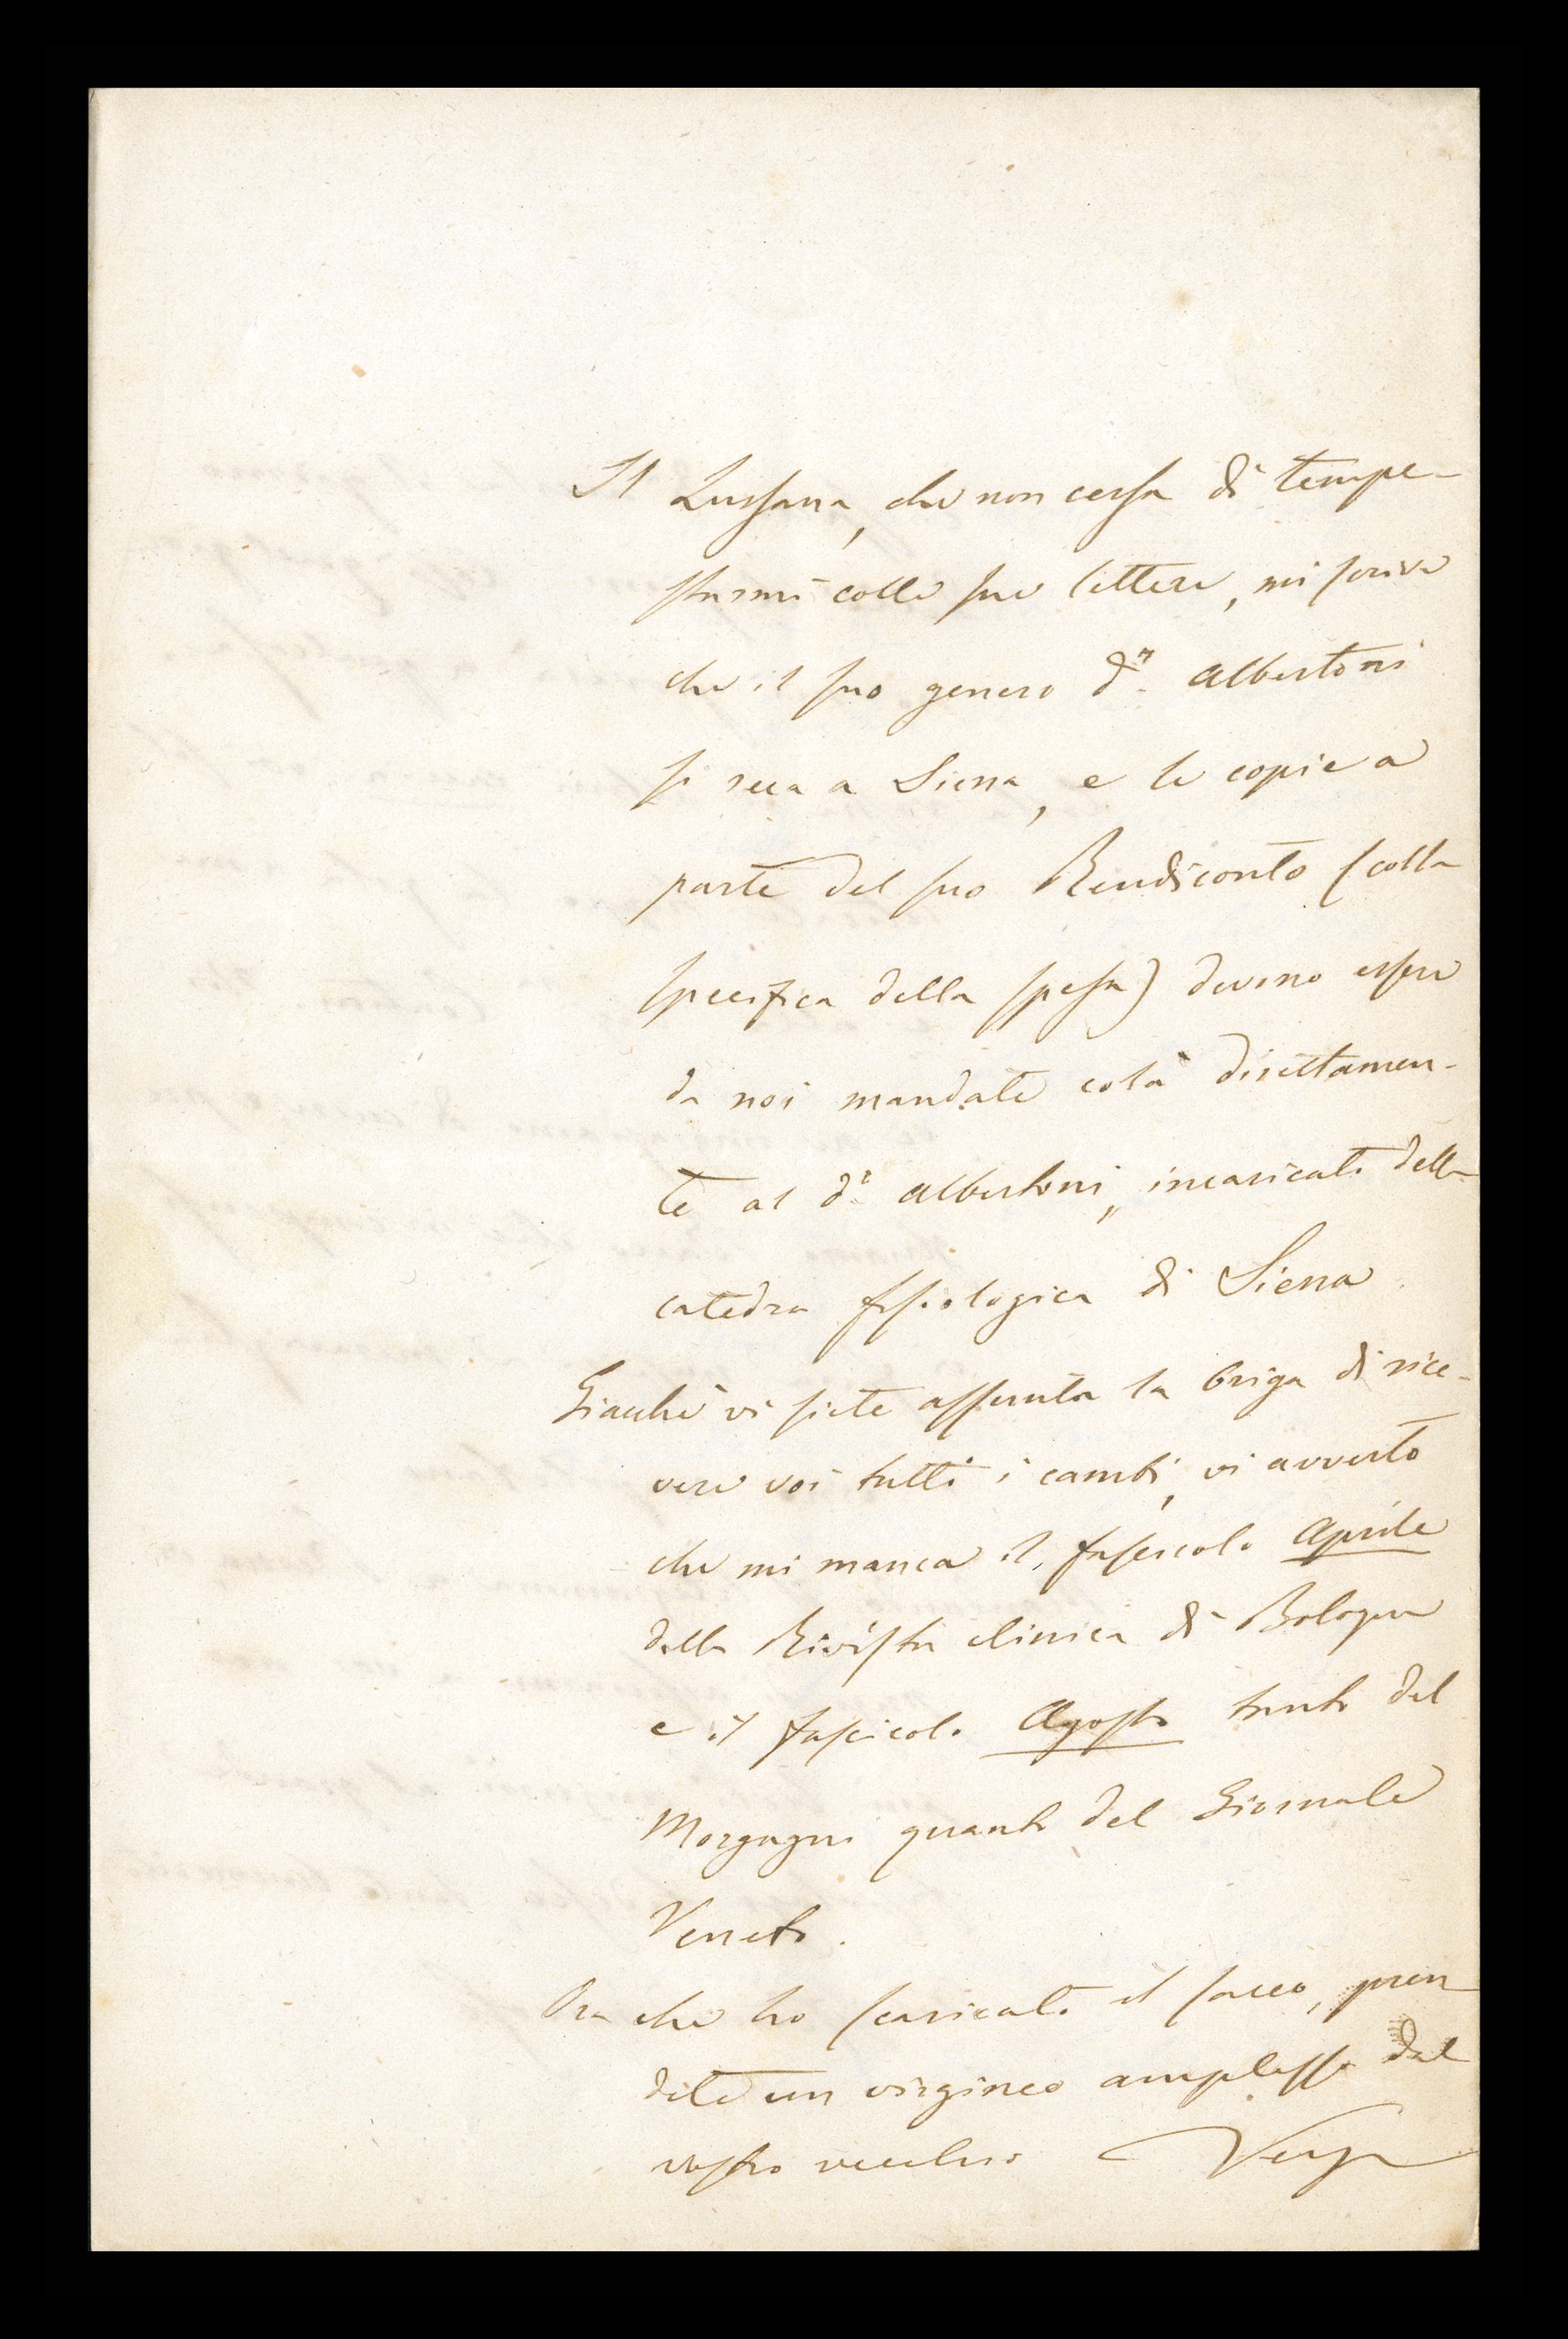 Il Lussana, che non cessa di tempe-
starmi colle sue lettere, mi scrive
che il suo genero dr. Albertoni
si reca a Siena, e le copie a
parte del suo Rendiconto (colla
specifica della spesa) devono essere
da noi mandate colà direttamen-
te al dr. Albertoni, incaricato della
catedra fisiologica di Siena.
Giacchè vi siete assunta la briga di rice-
vere voi tutti i cambi, vi avverto
che mi manca il fascicolo Aprile
della Rivista clinica di Bologna
e il fascicolo Agosto tanto del
Morgagni quanto del Giornale
Veneto.
Ora che ho scaricato il sacco, pren-
dete un virgineo amplesso dal
vostro vecchio Verga